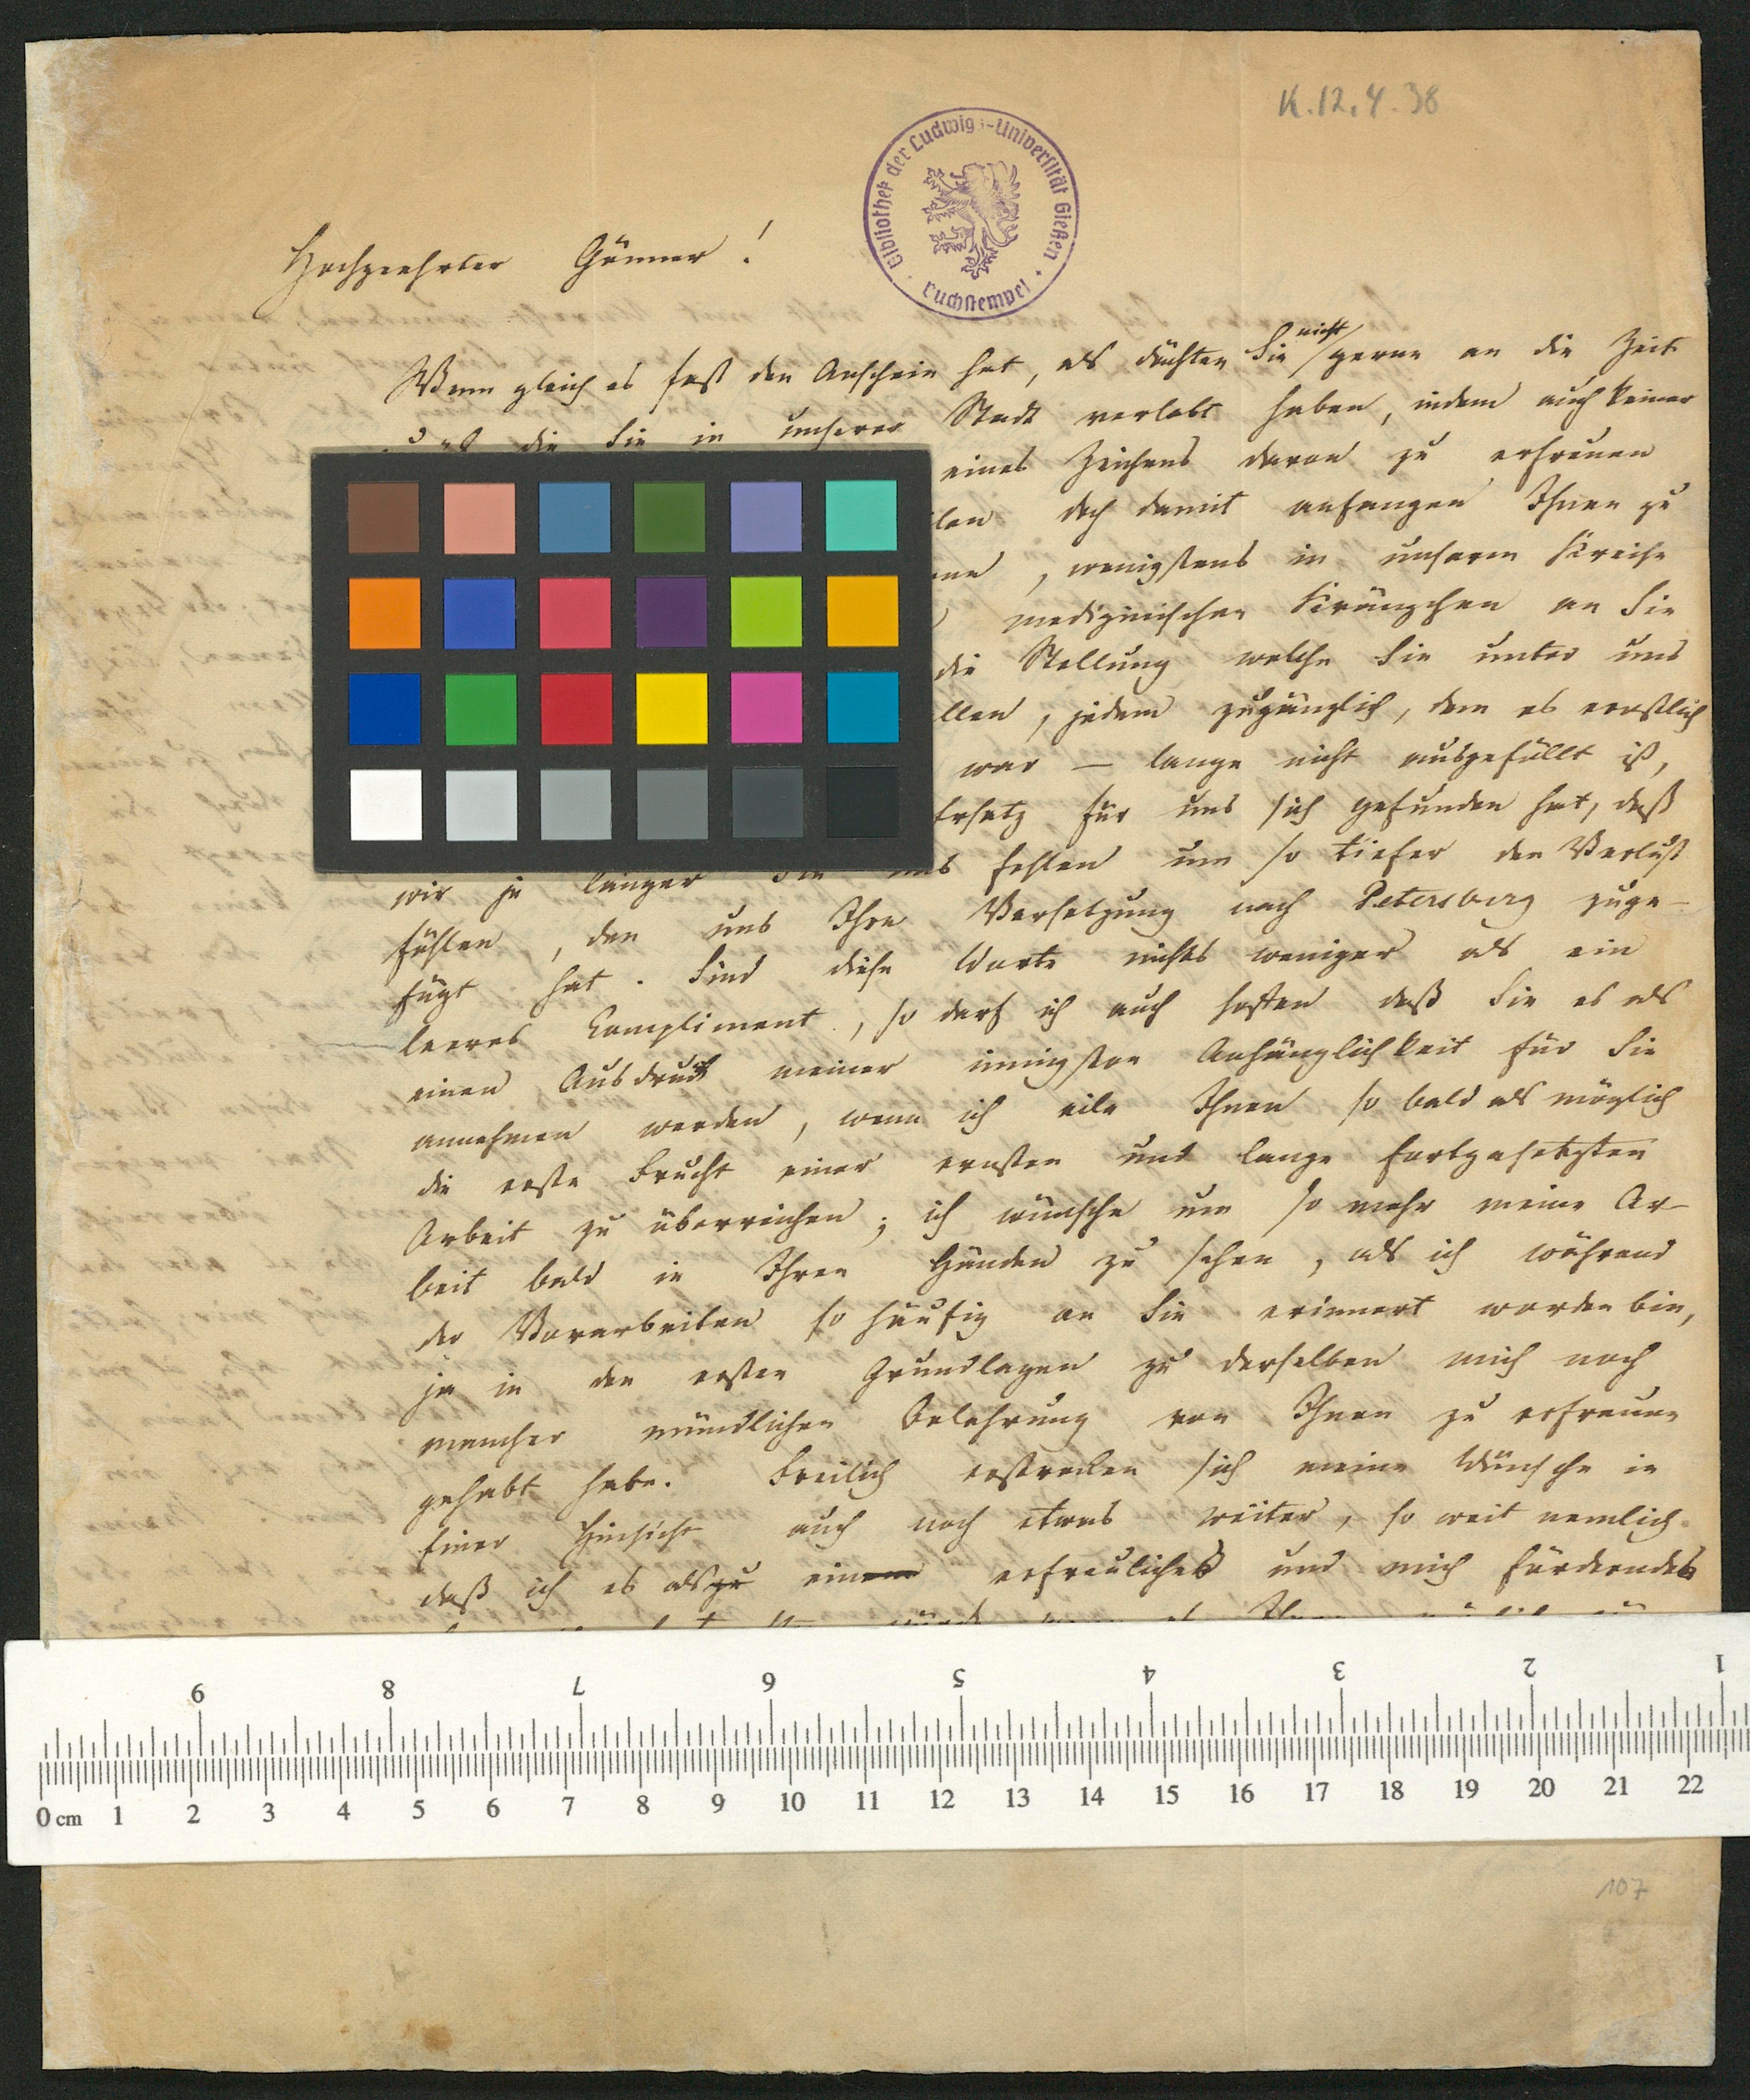 K. 12. 4. 38
Bibliothek der Ludwigs-Universität Gießen
Buchstempel
Hochgeehrter Gönner!
Wenn gleich es fast den Anschein hat, als dächten Sie nicht gerne an die Zeit
die Sie in unserer Stadt verlebt haben, indem auch keiner
eines Zeichens davon zu erfreuen
doch damit anfangen Ihnen zu
, wenigstens in unserem Kreise
medizinischen Kränzchen an Sie
die Stellung welche Sie unter uns
llen, jedem zugänglich, dem es ernstlich
war — lange nicht ausgefüllt ist,
Ersatz für uns sich gefunden hat, daß
wir je länger Sie uns fehlen um so tiefer den Verlust
fühlen, den uns Ihre Versetzung nach Petersburg zuge-
fügt hat. Sind diese Worte nichts weniger als ein
leeres Compliment, so darf ich auch hoffen daß Sie es als
einen Ausdruck meiner innigsten Anhänglichkeit für Sie
annehmen werden, wenn ich eile Ihnen so bald als möglich
die erste Frucht einer ernsten und lange fortgesetzten
Arbeit zu überreichen; ich wünsche um so mehr meine Ar-
beit bald in Ihren Händen zu sehen, als ich während
der Vorarbeiten so häufig an Sie erinnert worden bin,
ja in den ersten Grundlagen zu derselben mich noch
mancher mündlichen Belehrung von Ihnen zu erfreuen
gehabt habe. Freilich erstrecken sich meine Wünsche in
einer Hinsicht auch noch etwas weiter, so weit nemlich
daß ich es als zu einem erfreuliches und mich förderndes
9 8 7 6 5 4 3 2 1
0 cm 1 2 3 4 5 6 7 8 9 10 11 12 13 14 15 16 17 18 19 20 21 22
107